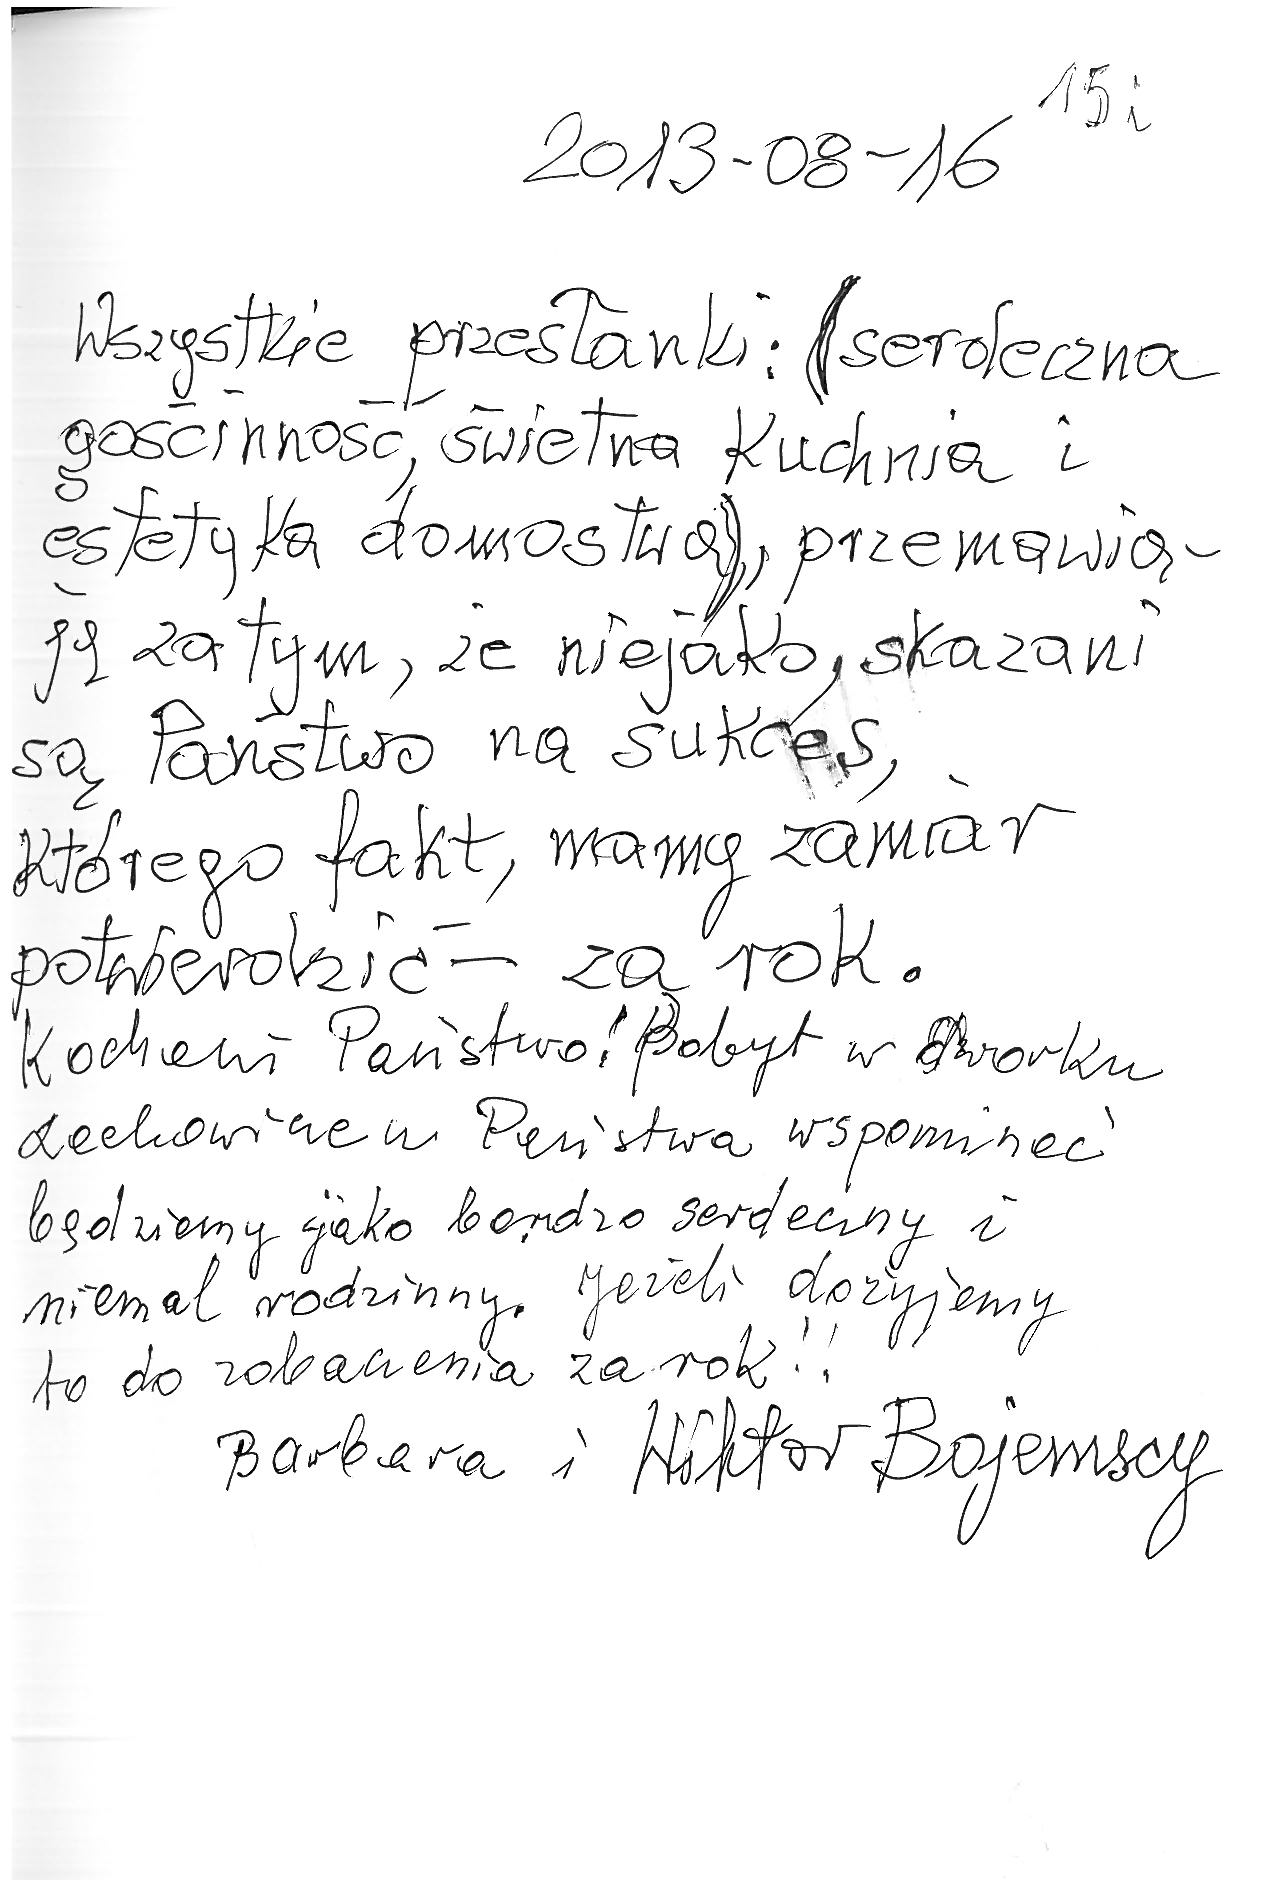 15 i
2013-08-16
Wszystkie przesłanki: (serdeczna
gościnność, świetna kuchnia i
estetyka domostwa), przemawia-
ją za tym, że niejako, skazani
są Państwo na sukces,
którego fakt, mamy zamiar
potwierdzić – za rok.
Kochani Państwo! Pobyt w dworku
Państwa wspominać
będziemy jako bardzo serdeczny i
niemal rodzinny. Jeżeli dożyjemy
to do zobaczenia za rok!!
Barbara i Wiktor Bojemscy